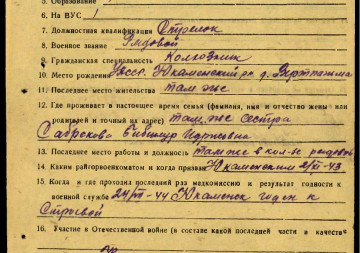 5. Образование
6. На ВУС 1
7. Должностная квалификация Стрелок
8. Военное звание Рядовой
9. Гражданская специальность Колхозник
10. Место рождения Уасср. Юкаменский р-н д.
11. Последнее место жительства там же
12. Где проживает в настоящее время семья (фамилия, имя и отчество жены или
родителей и точный их адрес) там же сестра
13. Последнее место работы и должность там же в кол-зе рядовой
14. Каким райгорвоенкоматом и когда призван Юкаменским
15. Когда и где проходил последний раз медкомиссию и результат годности к
военной службе Юкаменск годен к
Строевой
16. Участие в Отечественной войне (в составе какой последней части и качестве